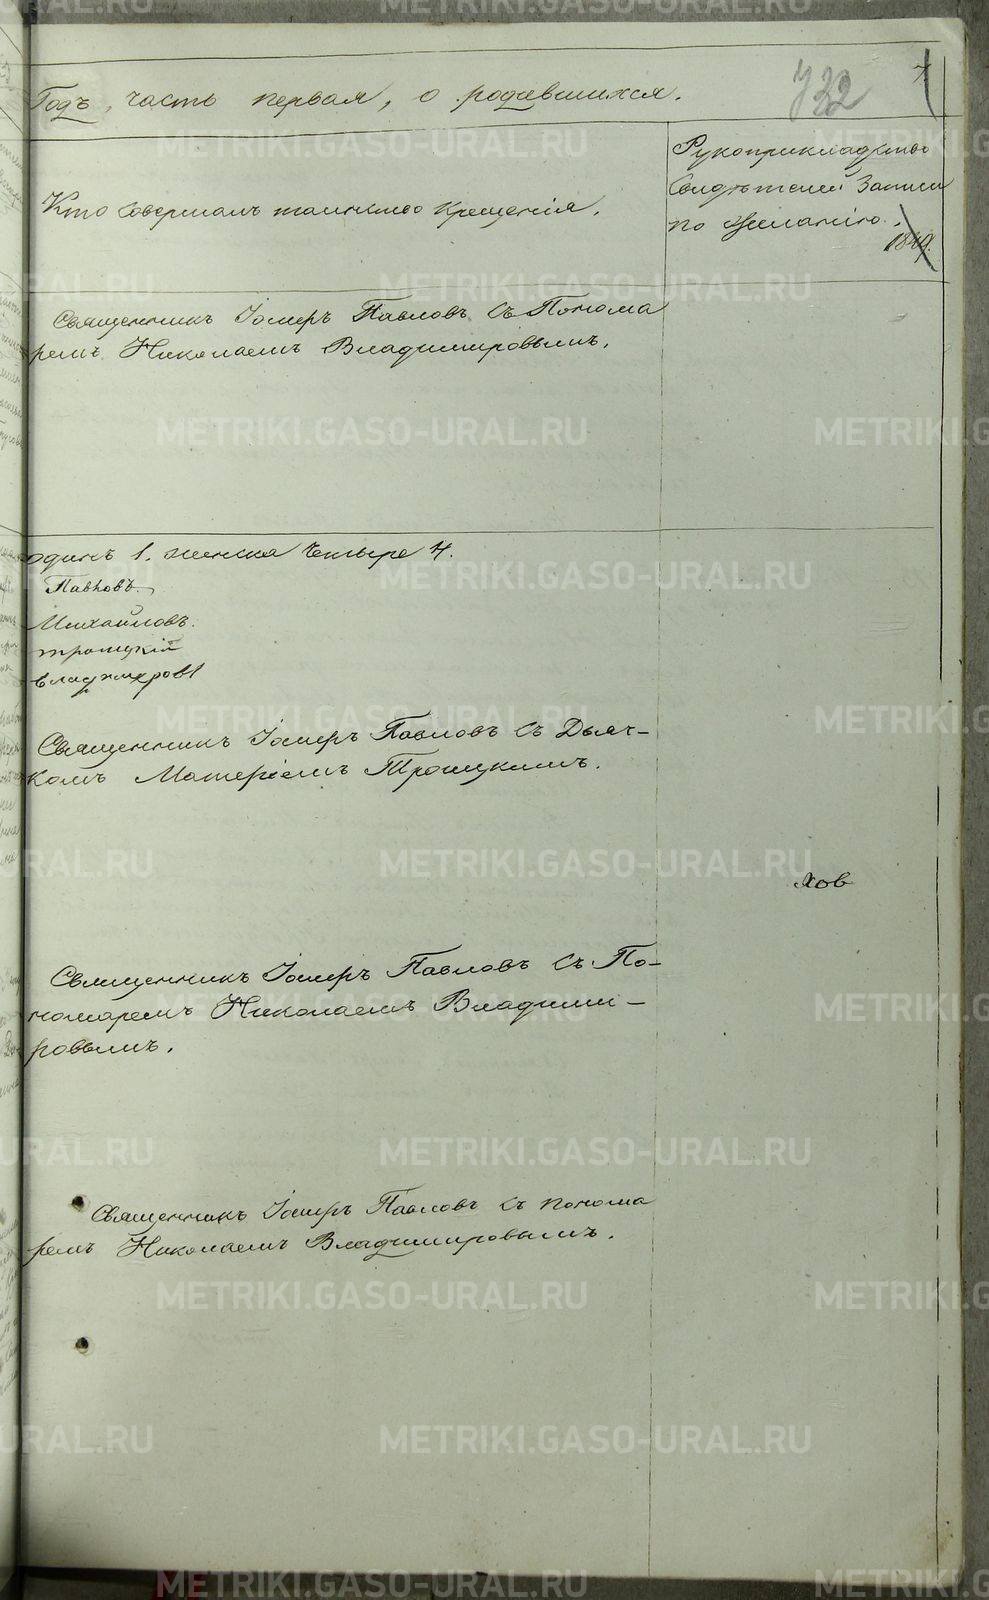 Годъ, часть первая, о родившихся.
732
7
Кто совершалъ таинство крещенія.
Рукоприкладство
свидѣтелей записи
по желанію.
1849.
Священникъ Іосифъ Павловъ съ Понома
ремъ Николаемъ Владимировымъ.
одинъ 1. женска четыре 4.
Павловъ.
Михайловъ.
Троицкій
Владимировъ
Священникъ Іосифъ Павловъ съ Дьяч-
комъ Троицкимъ.
хов
Священникъ Іосифъ Павловъ съ По-
номаремъ Николаемъ Владими-
ровымъ.
Священникъ Іосифъ Павловъ съ понома
ремъ Николаемъ Владимировымъ.
METRIKI.GASO-URAL.RU